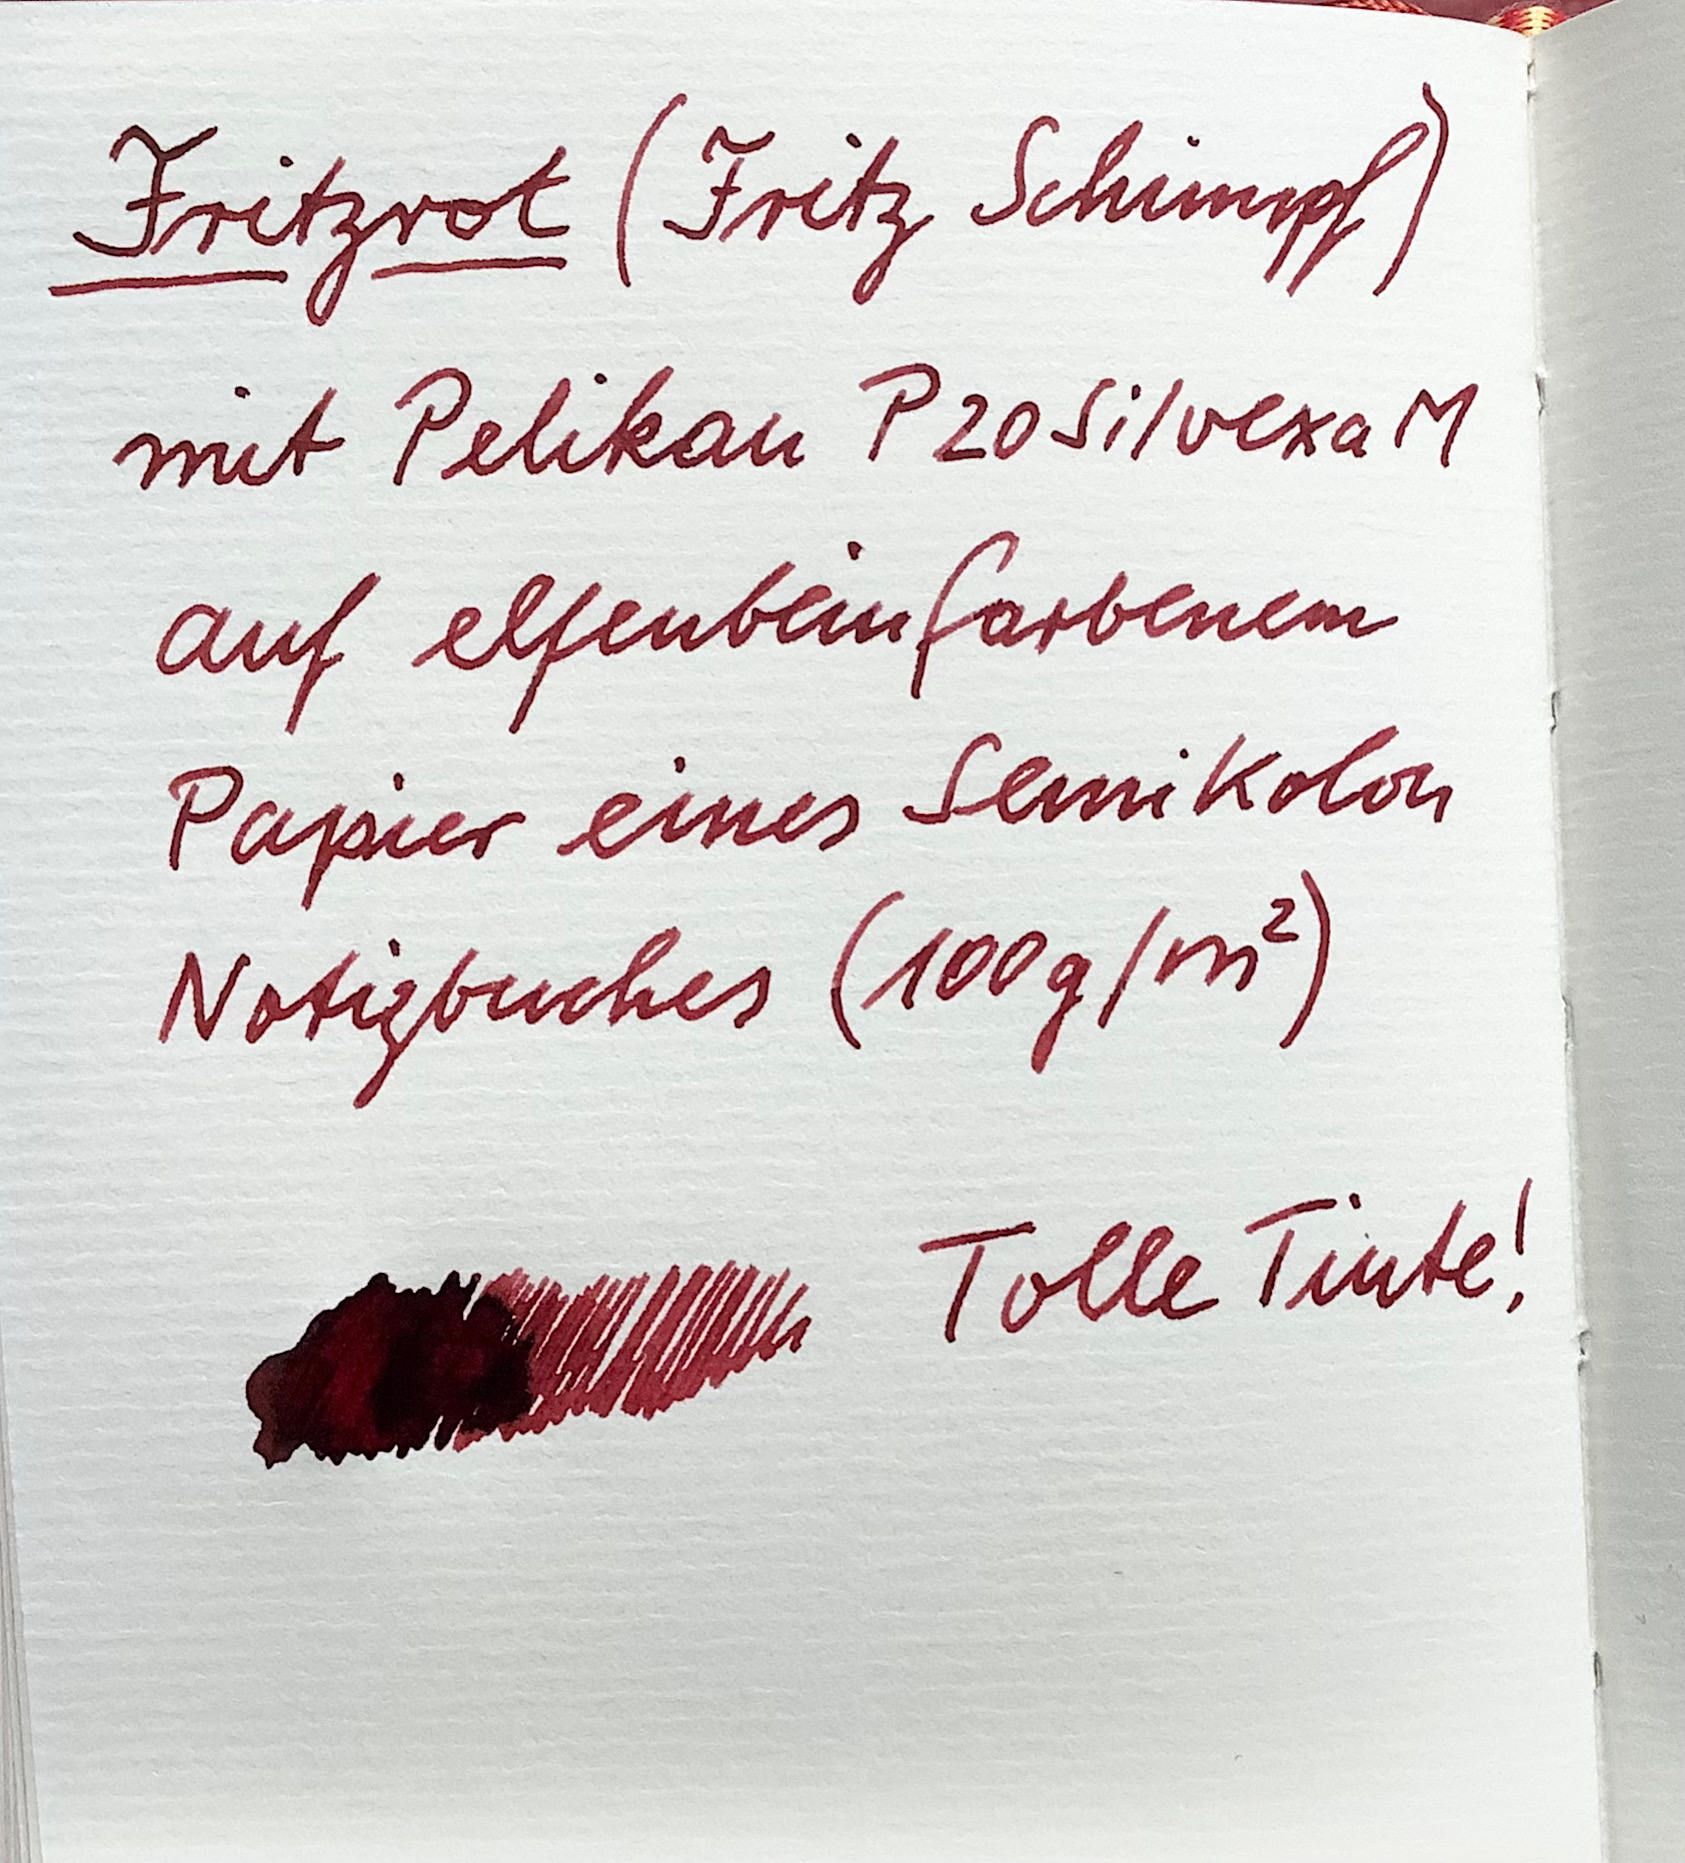 Fritzrot (Fritz Schimpf)
mit Pelikan P20 Silvexa M
auf elfenbeinfarbenem
Papier eines Semikolon
Notizbuches (100g/m²)
Tolle Tinte!